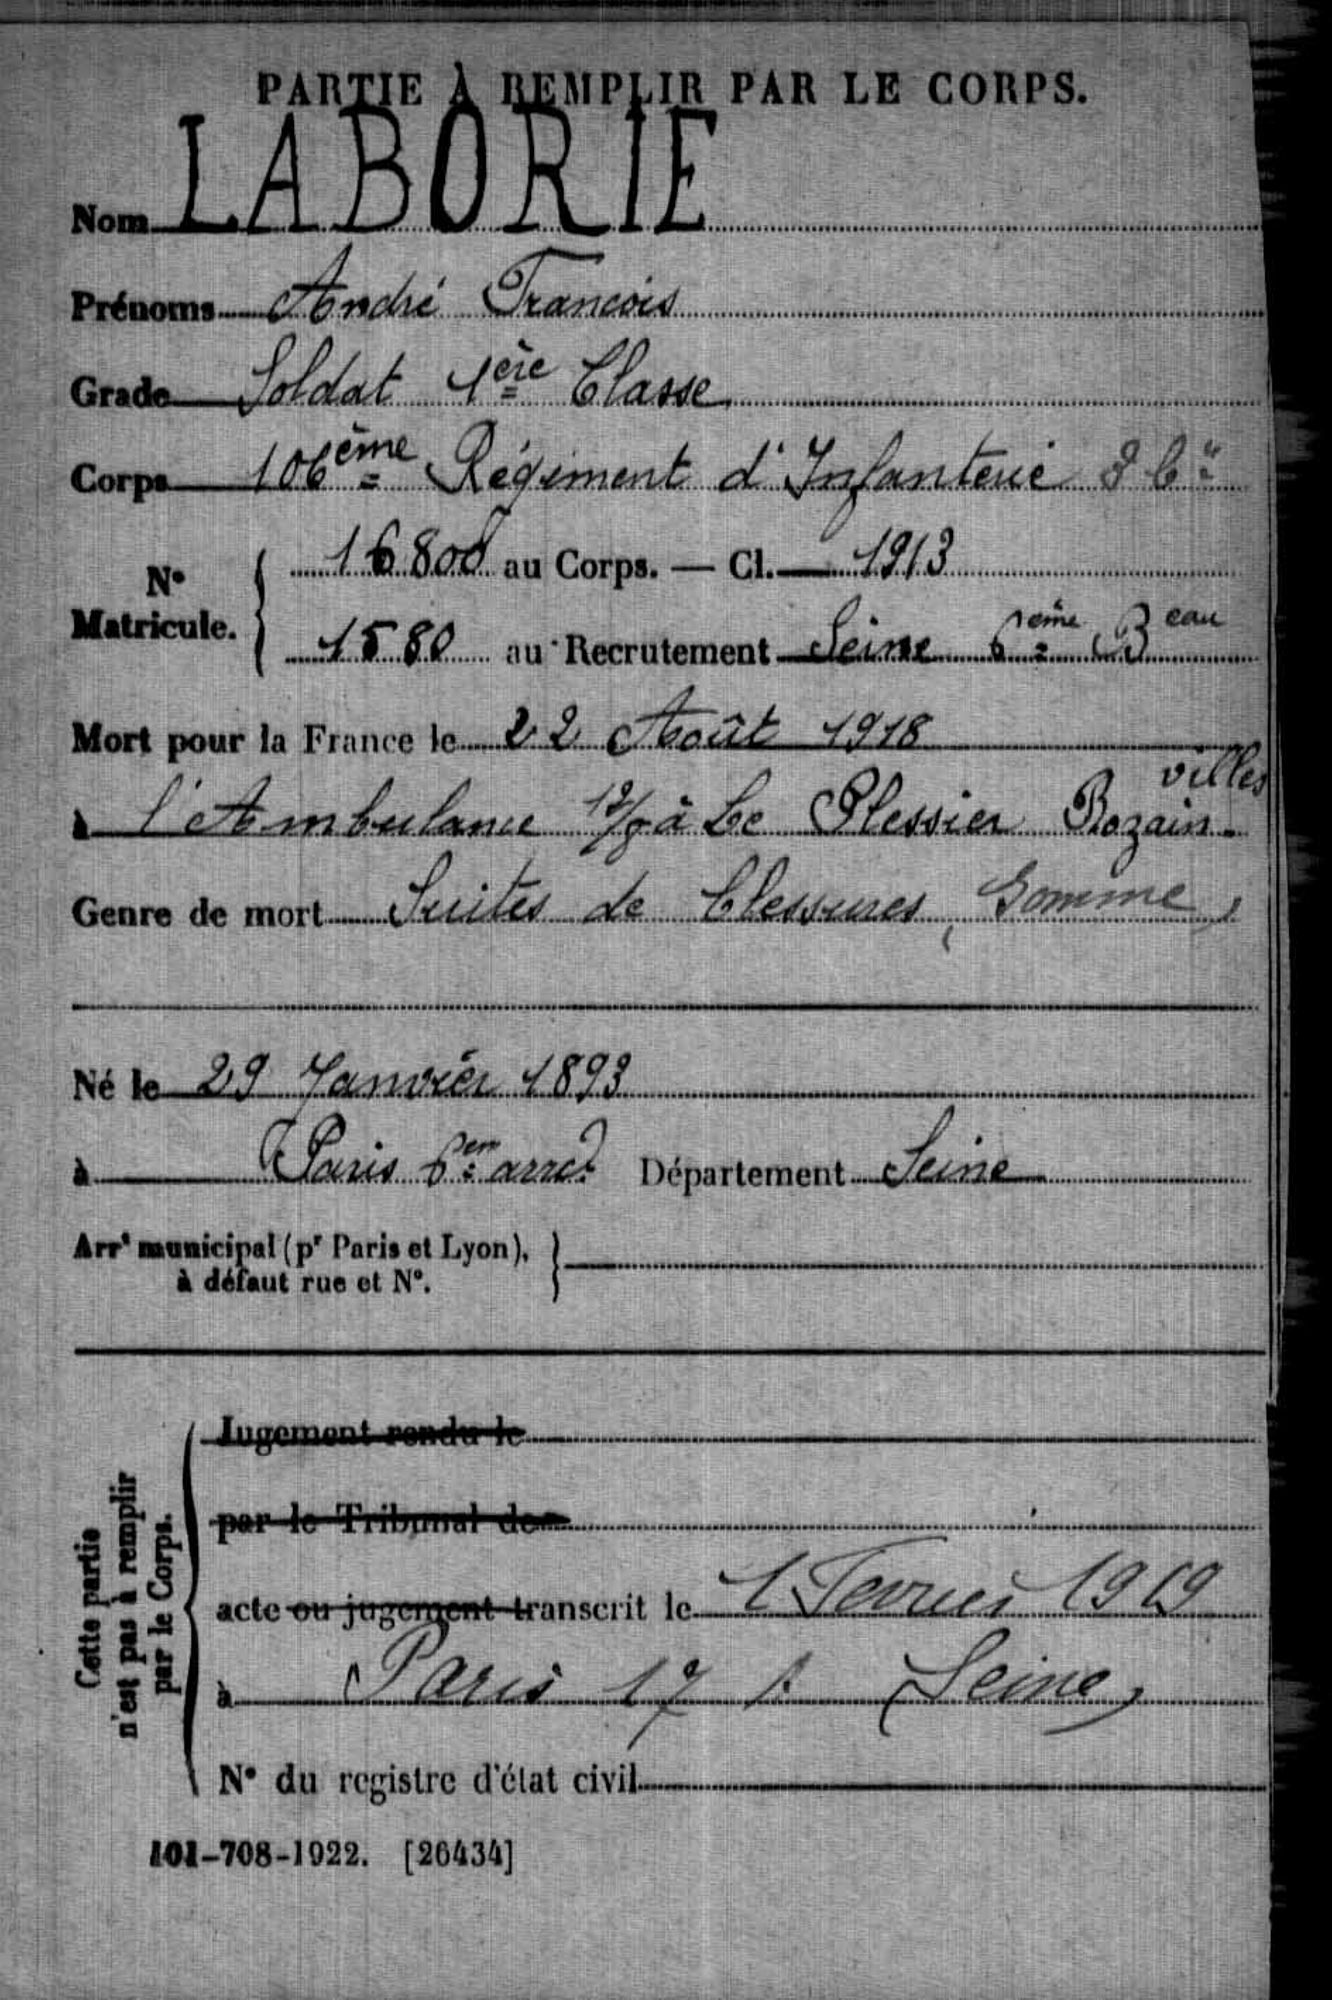 PARTIE À REMPLIR PAR LE CORPS.
Nom LABORIE
Prénoms André François
Grade Soldat 1ère Classe
Corps 106ème Régiment d'Infanterie
N° Matricule. 16800 au Corps. — Cl. 1913
1580 au Recrutement Seine 6ème Beau
Mort pour la France le 22 Août 1918
à l'Ambulance 12/8 à Le Plessier Rozainvilles
Genre de mort Suites de blessures (Somme)
Né le 29 Janvier 1893
à Paris 6em arrdt Département Seine
Arrt municipal (pr Paris et Lyon),
à défaut rue et N°.
Cette partie
n'est pas à remplir
par le Corps.
Jugement rendu le
par le Tribunal de
acte ou jugement transcrit le 1 Fevrier 1919
à Paris 17 (Seine)
N° du registre d'état civil
101-708-1922. [26434]